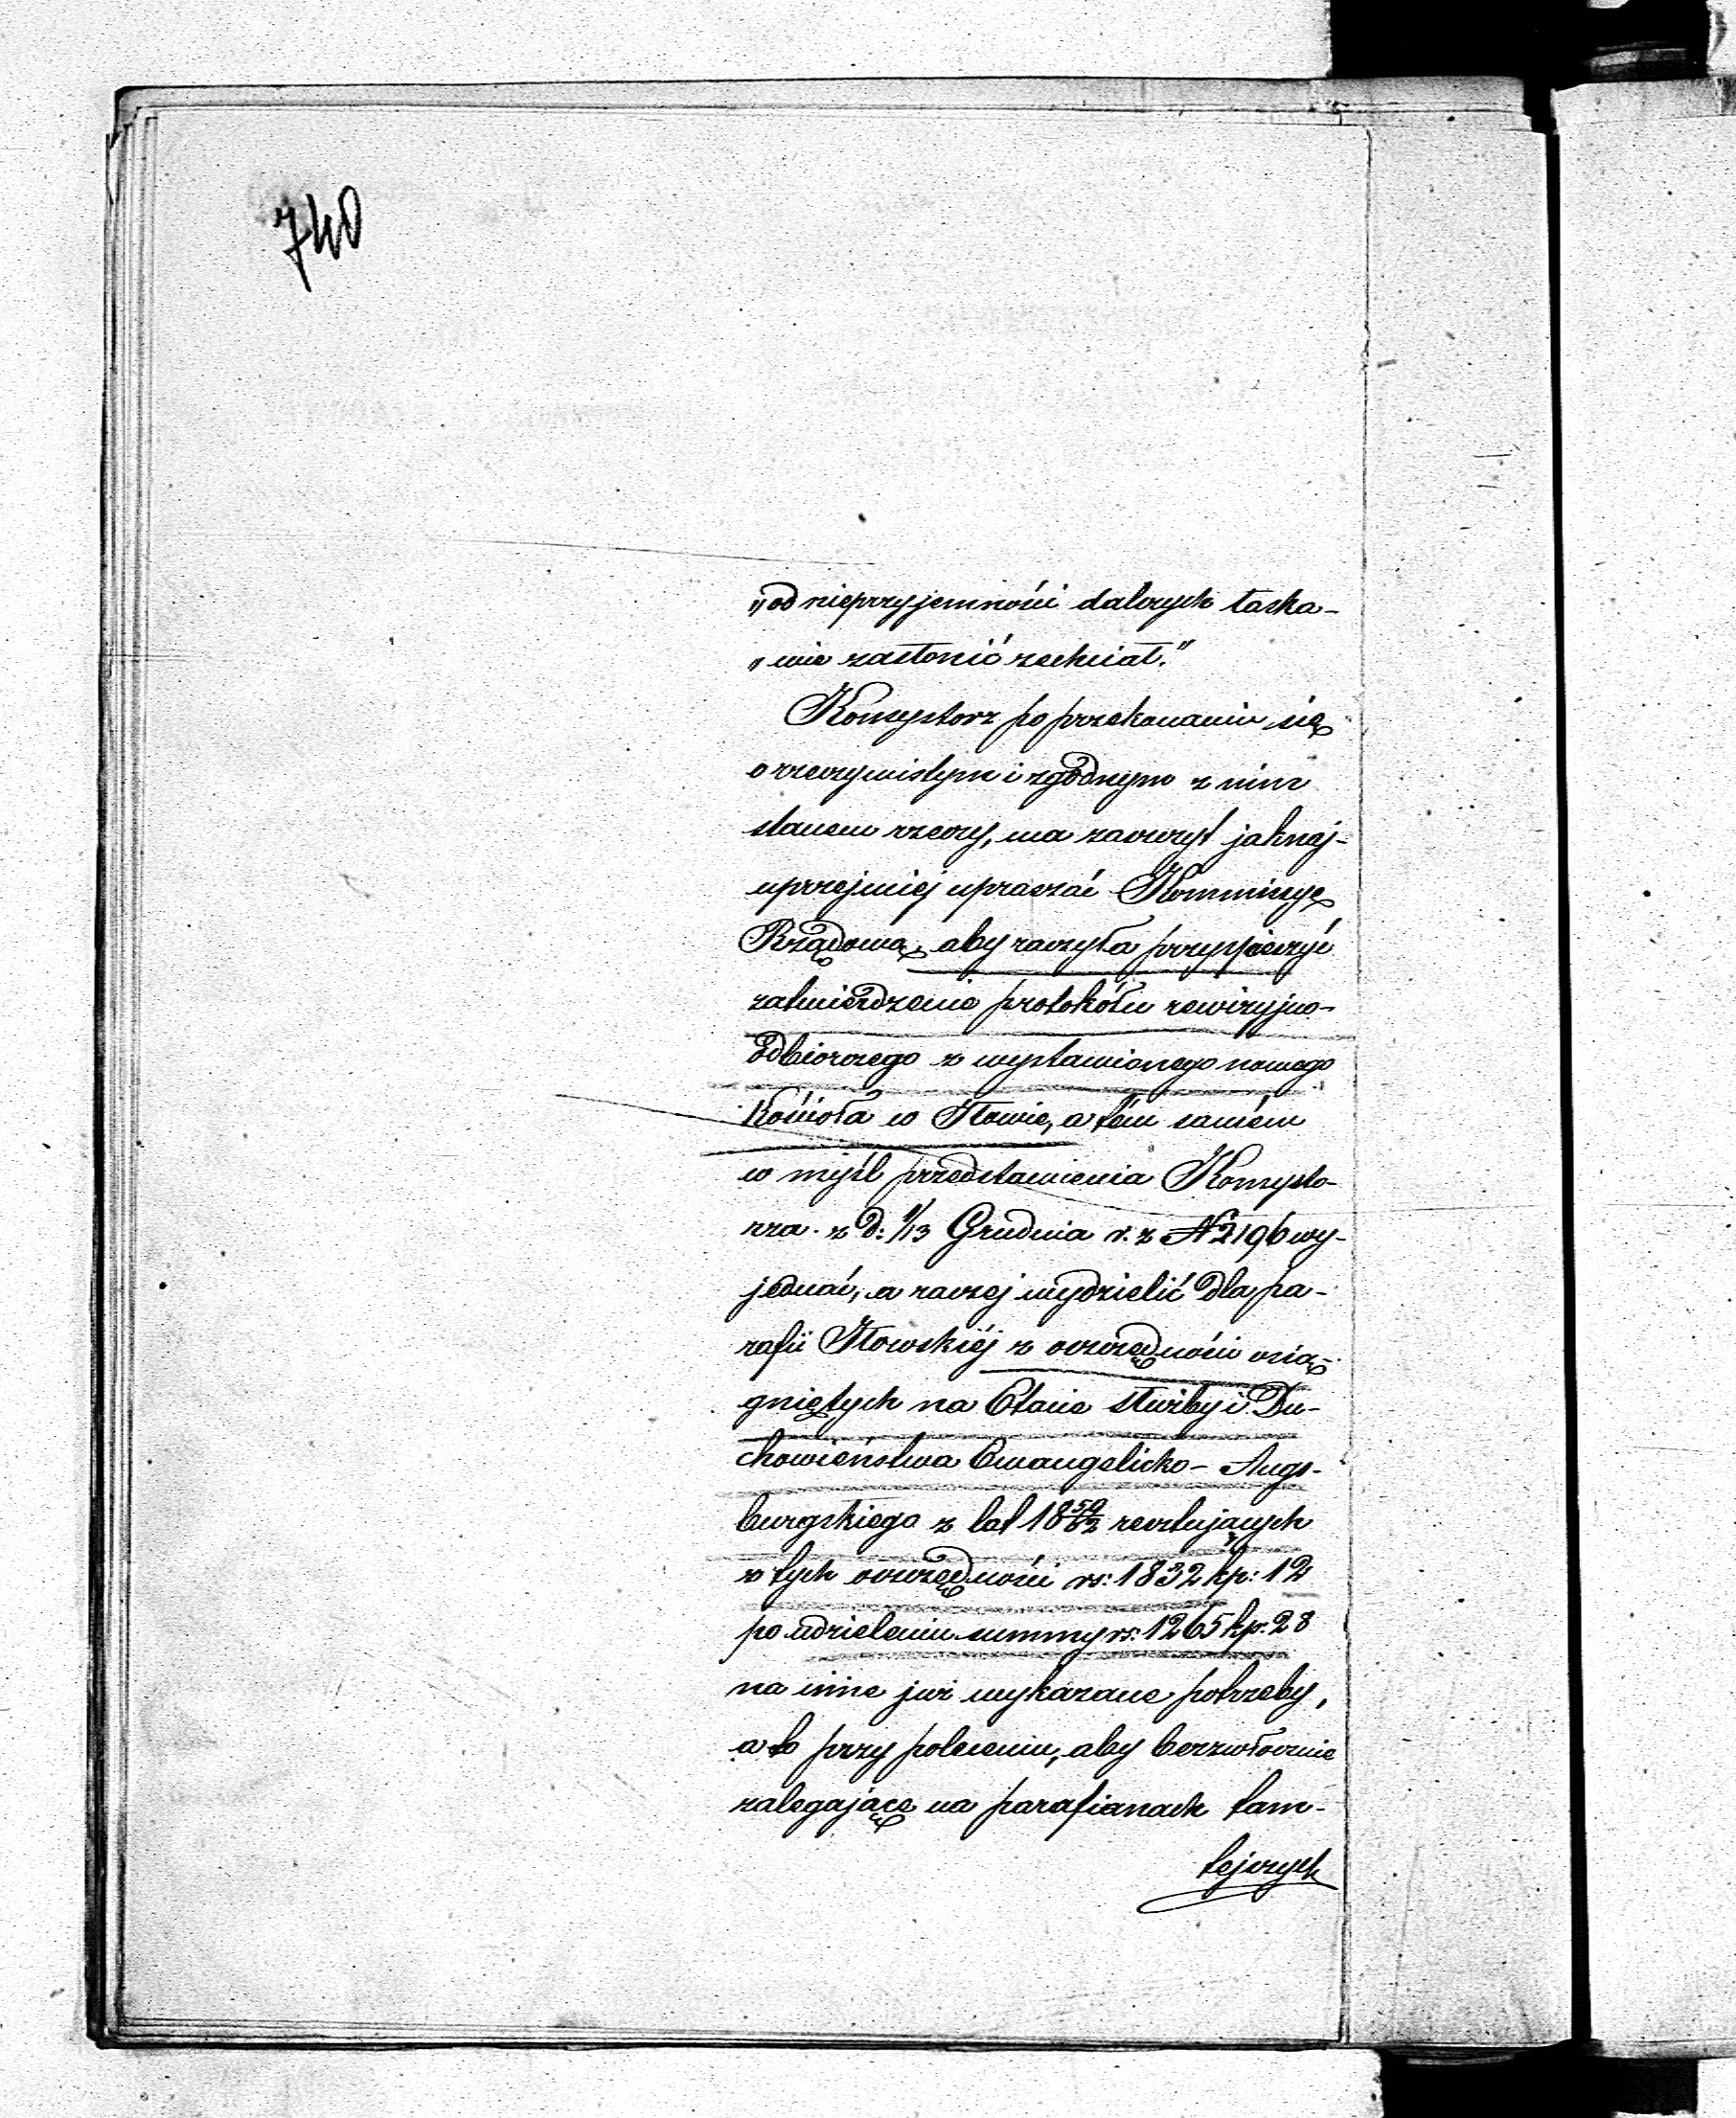 740
„od nieprzyjemności dalszych łaska-
„wie zasłonić zechciał."
Konsystorz po przekonaniu się
o rzeczywistym i zgodnym z nim
stanem rzeczy, ma zaszczyt jaknaj-
uprzejmiej upraszać Kommissyę
Rządową, aby raczyła przyspieszyć
zatwierdzenie protokółu rewizyjno-
odbiorczego z wystawionego nowego
Kościoła w Iłowie, a tém samém
w myśl przedstawienia Konsysto-
rza z d: 1/13 Grudnia r. z. N 2196 wy-
jednać, a raczej wydzielić dla pa-
rafii Iłowskiéj z oszczędności osią-
gniętych na Etacie służby i Du-
chowieństwa Ewangelicko-Augs-
burgskiego z lat 18 59/62 resztujących
z tych oszczędności rs: 1832 kp: 12
po udzieleniu summy rs: 1265 kp. 28
na inne już wykazane potrzeby,
a to przy poleceniu, aby bezzwłocznie
zalegające na parafianach tam-
tejszych